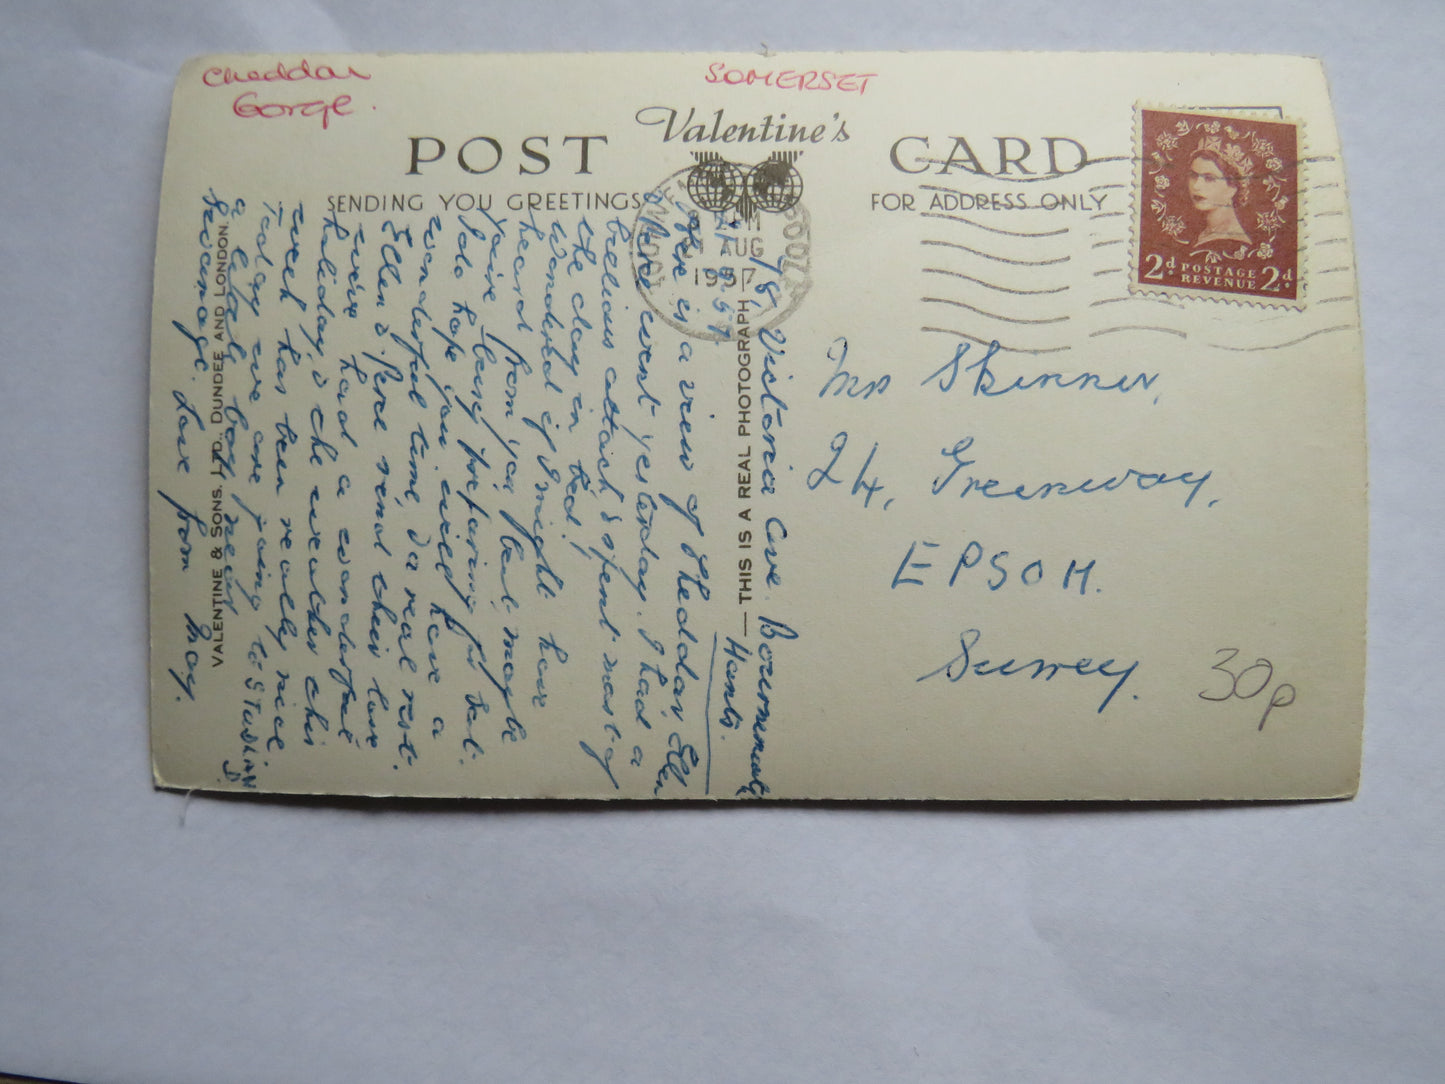 Cheddar
Gorge.
SOMERSET
Valentine's
POST CARD
SENDING YOU GREETINGS
FOR ADDRESS ONLY
AUG
1957
2d POSTAGE REVENUE 2d
78 Victoria Ave. Bournemouth
Hants.
Here is a view of Cheddar Ellen
& I went yesterday. I had a
bilious attack & spent most of
the day in bed.
Wondered if I might have
heard from you but maybe
you're busy preparing for Sat.
I do hope you will have a
wonderful time & a real rest.
Ellen & Perc send their love
we've had a wonderful
holiday, & the weather this
week has been really nice.
Today we are going to STUDLAND
a lovely bay near
Swanage. Love from May.
VALENTINE & SONS. LTD., DUNDEE AND LONDON.
— THIS IS A REAL PHOTOGRAPH
Mrs Skinner,
24, Greenway,
EPSOM.
Surrey.
30p